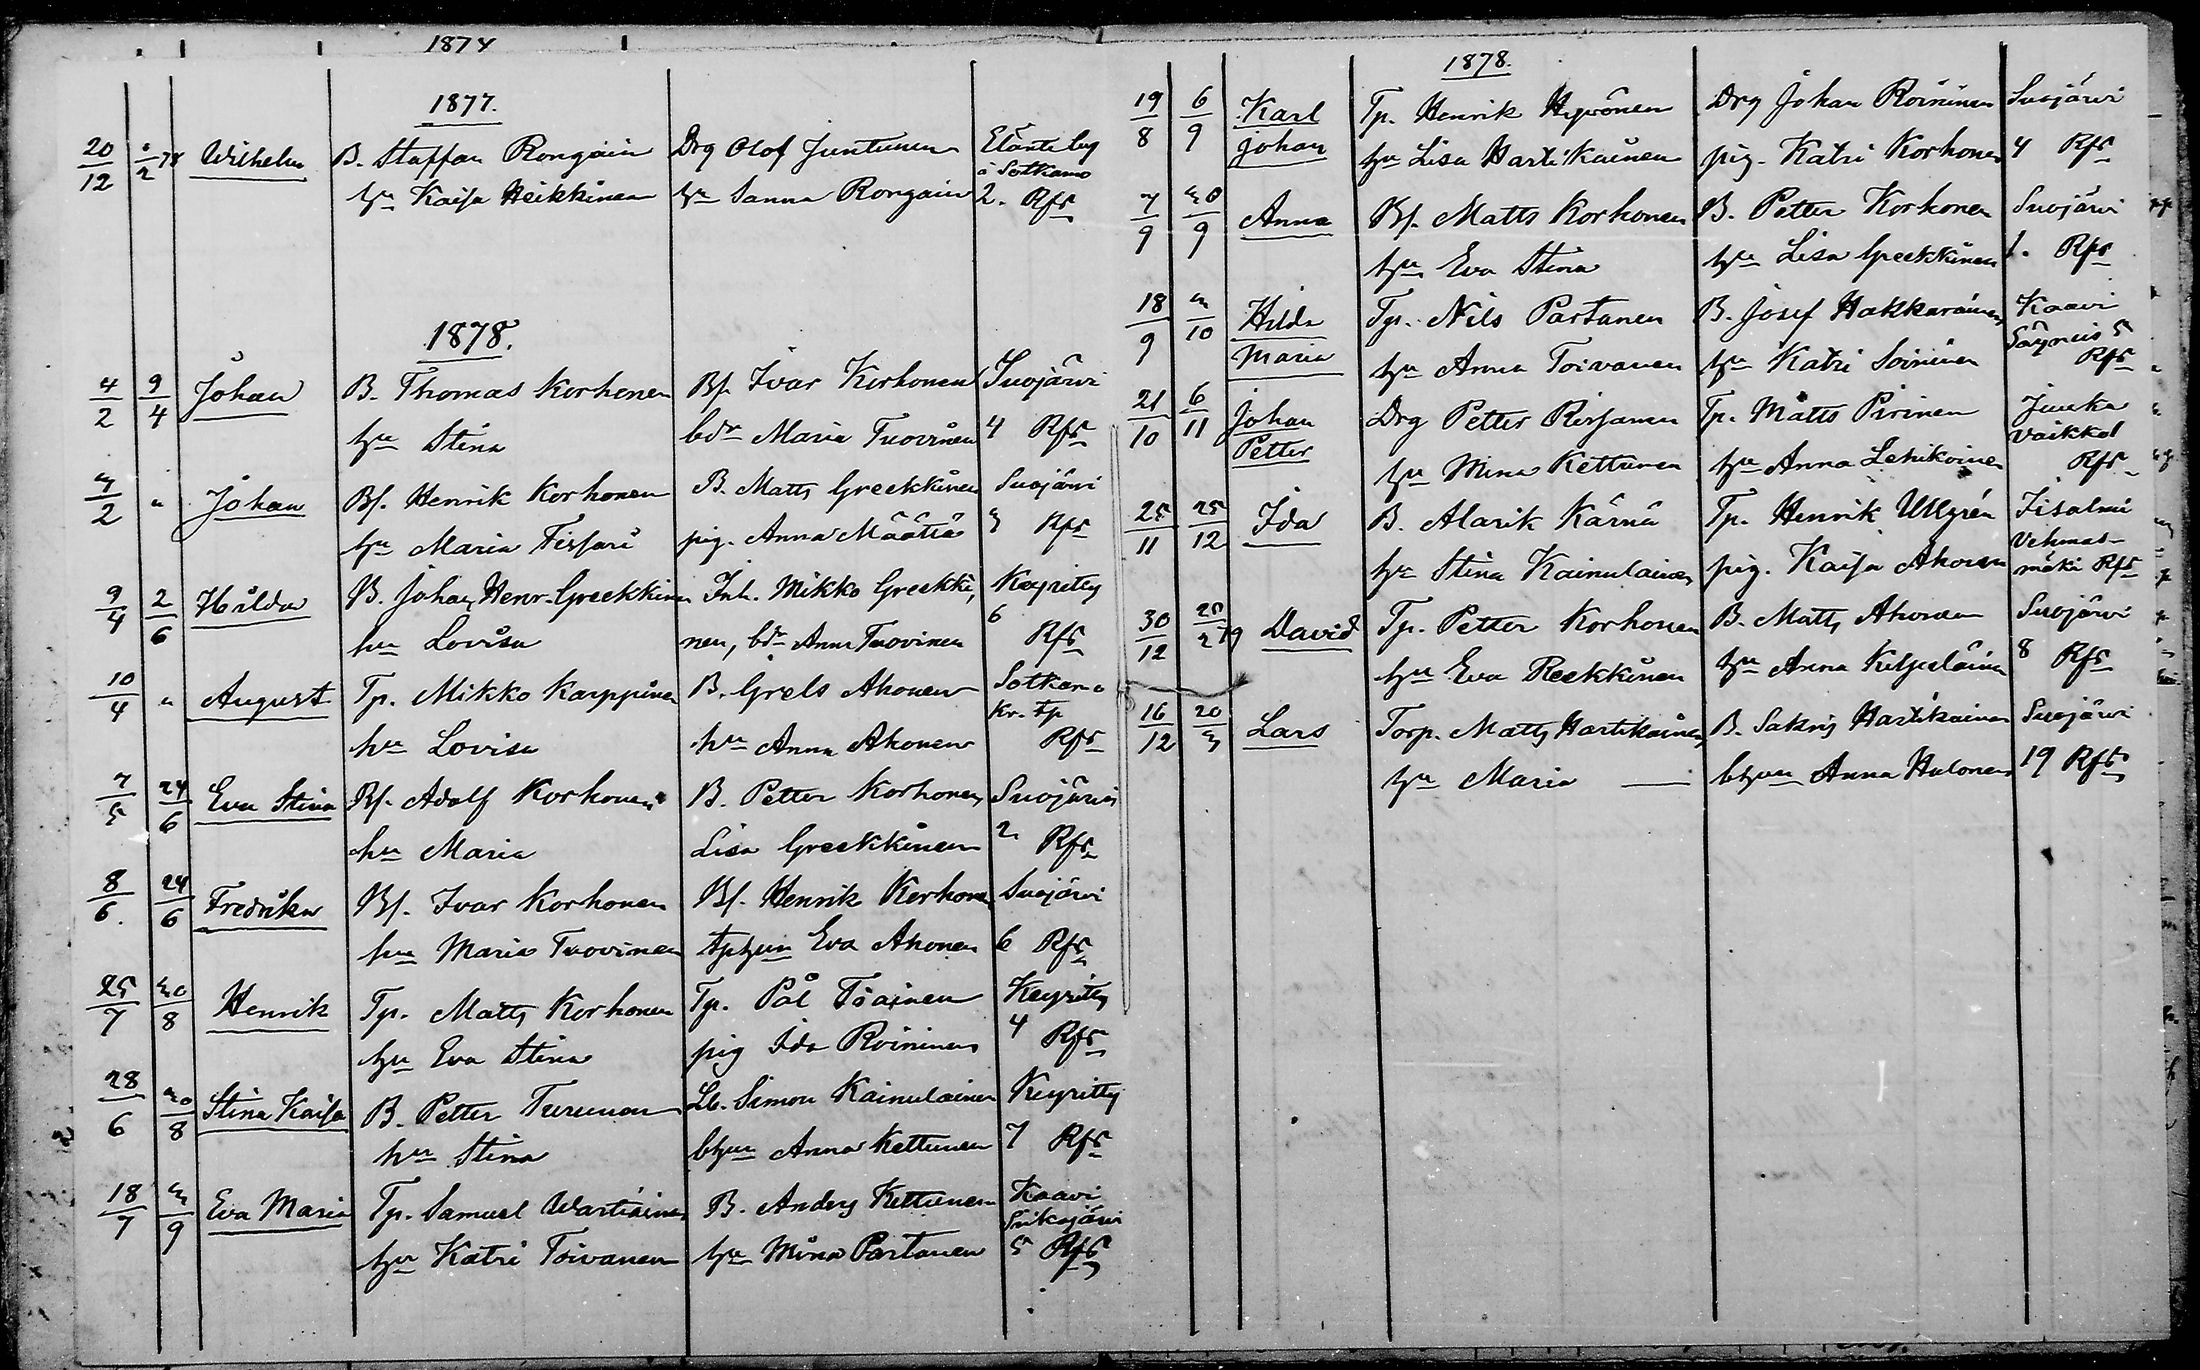 1874
1877.
20/12 2/2 78 Wilhelm B. Staffan Rongain Drg Olof Juntunen
hu Kaisa Heikkinen hu Sanna Rongain i Sotkamo 2. Rfs
1878.
4/2 9/4 Johan B. Thomas Korhonen Bf. Ivar Korhonen Suojärvi
hu Stina bdr Maria Tuovinen 4 Rfs
4/2 " Johan Bf. Henrik Korhonen B. Matts Greekkinen Suojärvi
hu Maria Tissari pig. Anna Määttä 3 Rfs
9/4 2/6 Hilda B. Johan Henr. Greekkinen Inh. Mikko Greekki, Keyritty
hu Lovisa nen, bdr Anna Tuovinen 6 Rfs
10/4 " August Tp. Mikko Karppinen B. Grels Ahonen Sotkamo
hu Lovisa hu Anna Ahonen Kr. tp Rfs
7/5 24/6 Eva Stina Bf. Adolf Korhonen B. Petter Korhonen Suojärvi
hu Maria Lisa Greekkinen 2 Rfs
8/6. 24/6 Fredrika Bf. Ivar Korhonen Bf. Henrik Korhonen Suojärvi
hu Maria Tuovinen tphun Eva Ahonen 6 Rfs
25/7 30/8 Henrik Tp. Matts Korhonen Tp. Pål Toainen Keyritty
hu Eva Stina pig Ida Roininen 4 Rfs
28/6 30/8 Stina Kaisa B. Petter Turunen Lb. Simon Kainulainen Keyritty
hu Stina bhun Anna Kettunen 7 Rfs
18/7 3/9 Eva Maria Tp. Samuel Wartiainen B. Anders Kettunen Kaavi
hu Katri Toivanen hu Mina Partanen Siikajärvi 5 Rfs
1878.
19/8 6/9 Karl Tp. Henrik Hyvönen Drg Johan Roininen Suojärvi
Johan hu Lisa Hartikainen pig. Katri Korhonen 4 Rfs
7/9 30/9 Anna Bf. Matts Korhonen B. Petter Korhonen Suojärvi
hu Eva Stina hu Lisa Greekkinen 1. Rfs
18/9 3/10 Hilda Tp. Nils Partanen B. Josef Hakkarainen Kaavi
Maria hu Anna Toivanen hu Katri Soininen Säyneis 5 Rfs
21/10 6/11 Johan Drg Petter Rissanen Tp. Matts Pirinen Juuka
Petter hu Mina Kettunen hu Anna Lehikoinen Vaikko 1 Rfs
25/11 25/12 Ida B. Alarik Kärnä Tp. Henrik Ullgrén Iisalmi
hu Stina Kainulainen pig. Kaisa Ahonen Vehmas-
mäki Rfs
30/12 25/2 79 David Tp. Petter Korhonen B. Matts Ahonen Suojärvi
hu Eva Reekkinen hu Anna Kilpeläinen 8 Rfs
16/12 20/3 Lars Torp. Matts Hartikainen B. Sakris Hartikainen Suojärvi
hu Maria — bhun Anna Halonen 19 Rfs